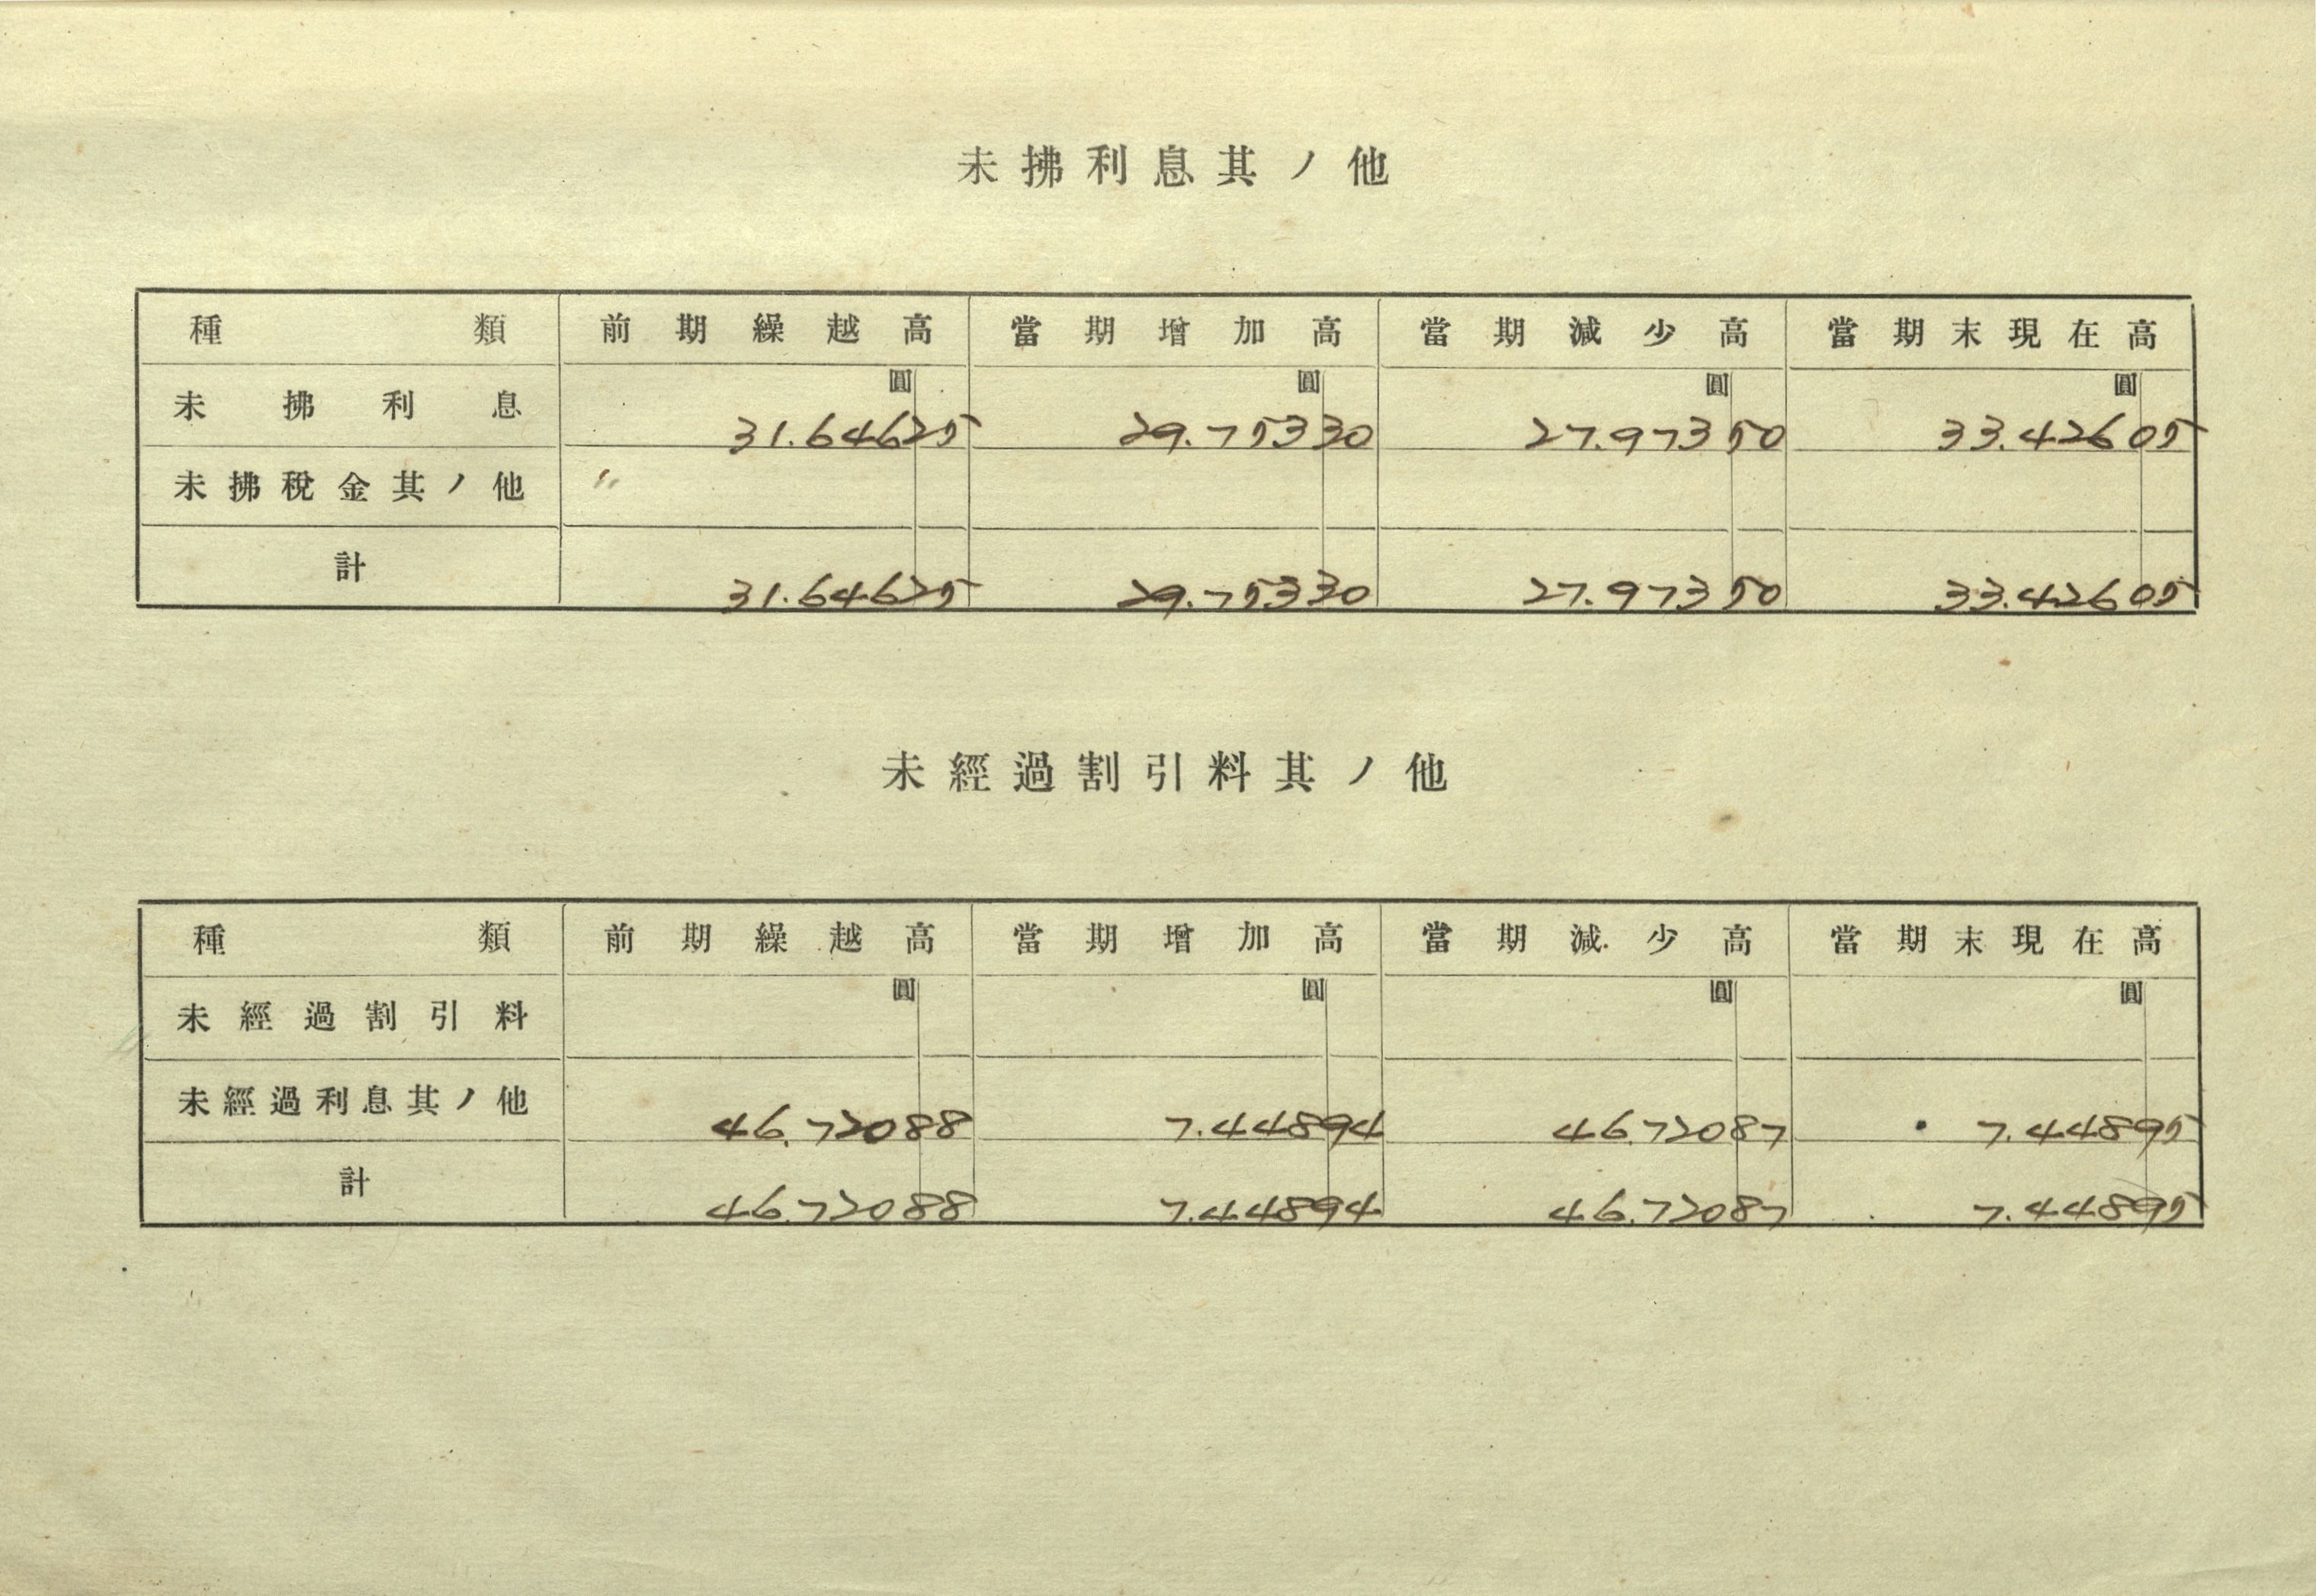 未拂利息其ノ他
種類 前期繰越高 當期增加高 當期減少高 當期末現在高
圓 圓 圓 圓
未拂利息 31.64625 29.75330 27.97350 33.42605
未拂稅金其ノ他 〃
計 31.64625 29.75330 27.97350 33.42605
未經過割引料其ノ他
種類 前期繰越高 當期增加高 當期減少高 當期末現在高
圓 圓 圓 圓
未經過割引料
未經過利息其ノ他 46.72088 7.44894 46.72087 7.44895
計 46.72088 7.44894 46.72087 7.44895